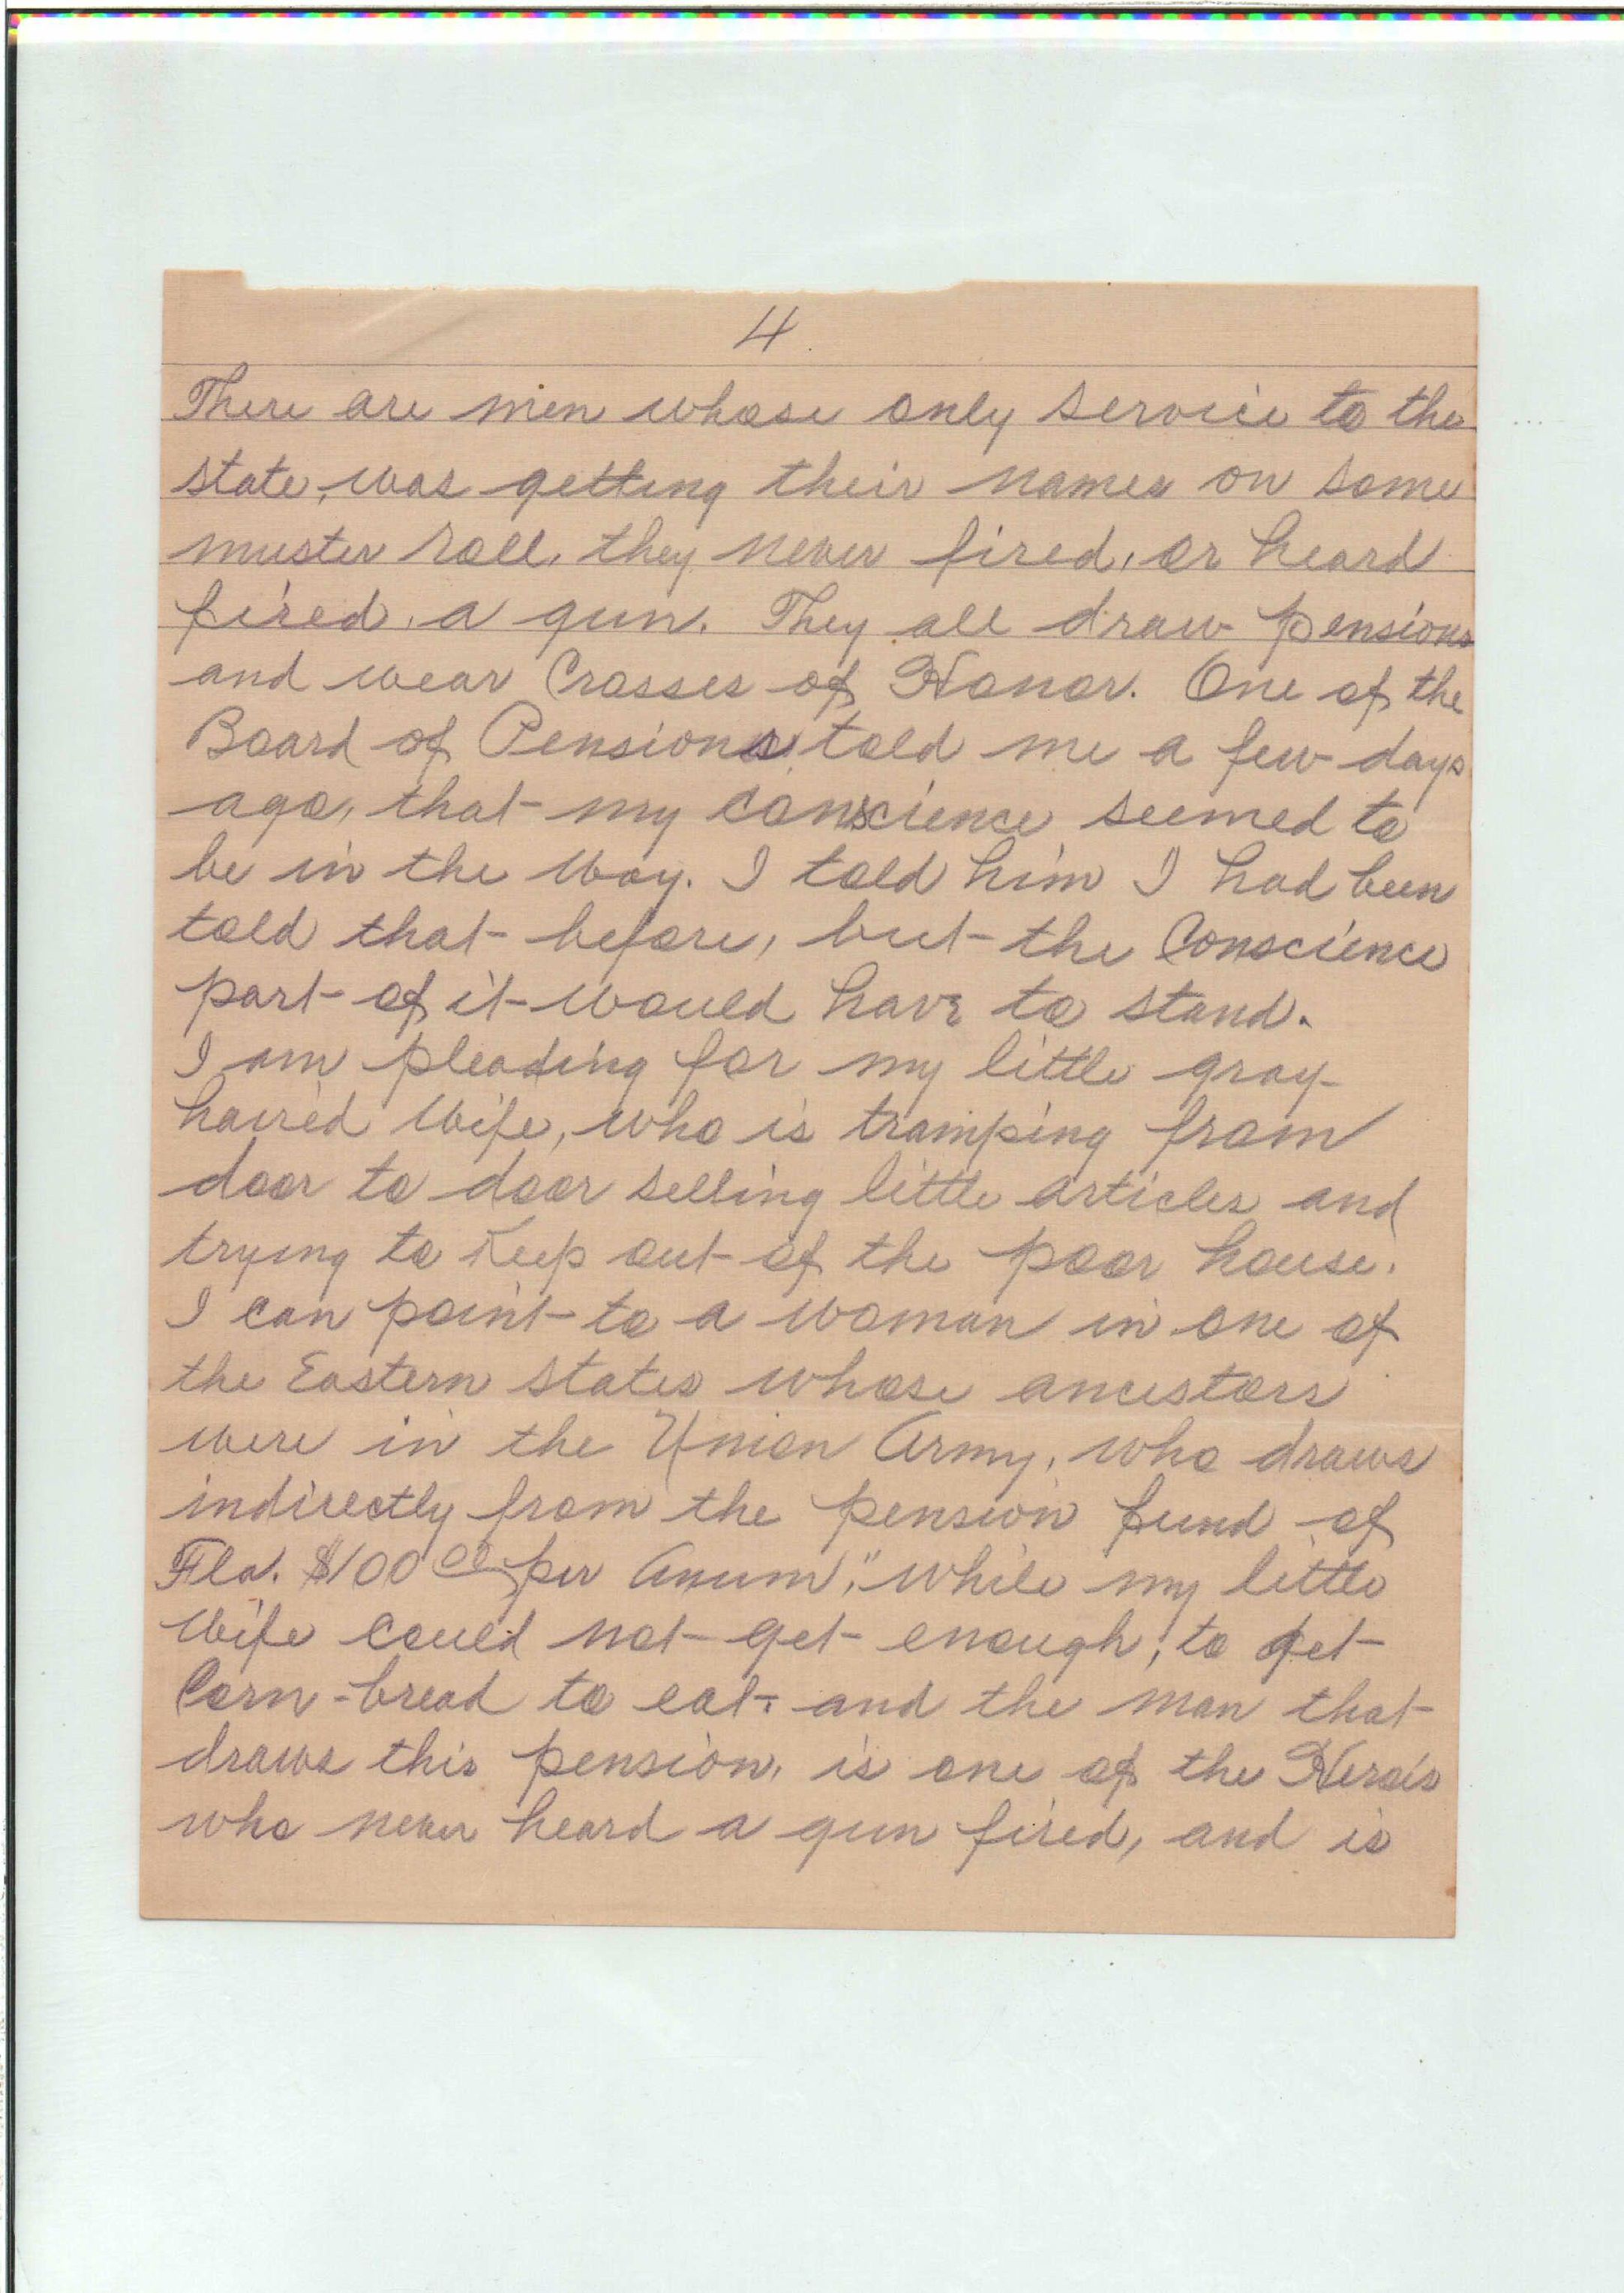 4
There are men whose only service to the
state, was getting their names on some
muster roll, they never fired, or heard
fired, a gun. They all draw pensions
and wear Crosses of Honor. One of the
Board of Pensions told me a few days
ago, that my conscience seemed to
be in the way. I told him I had been
told that before, but the Conscience
part of it would have to stand.
I am pleading for my little gray-
haired wife, who is tramping from
door to door selling little articles and
trying to keep out of the poor house.
I can point to a woman in one of
the Eastern states whose ancestors
were in the Union Army, who draws
indirectly from the pension fund of
Fla. $100 00 per Anum," while my little
wife could not get enough, to get
Corn-bread to eat. and the man that
draws this pension, is one of the Heroes
who never heard a gun fired, and is